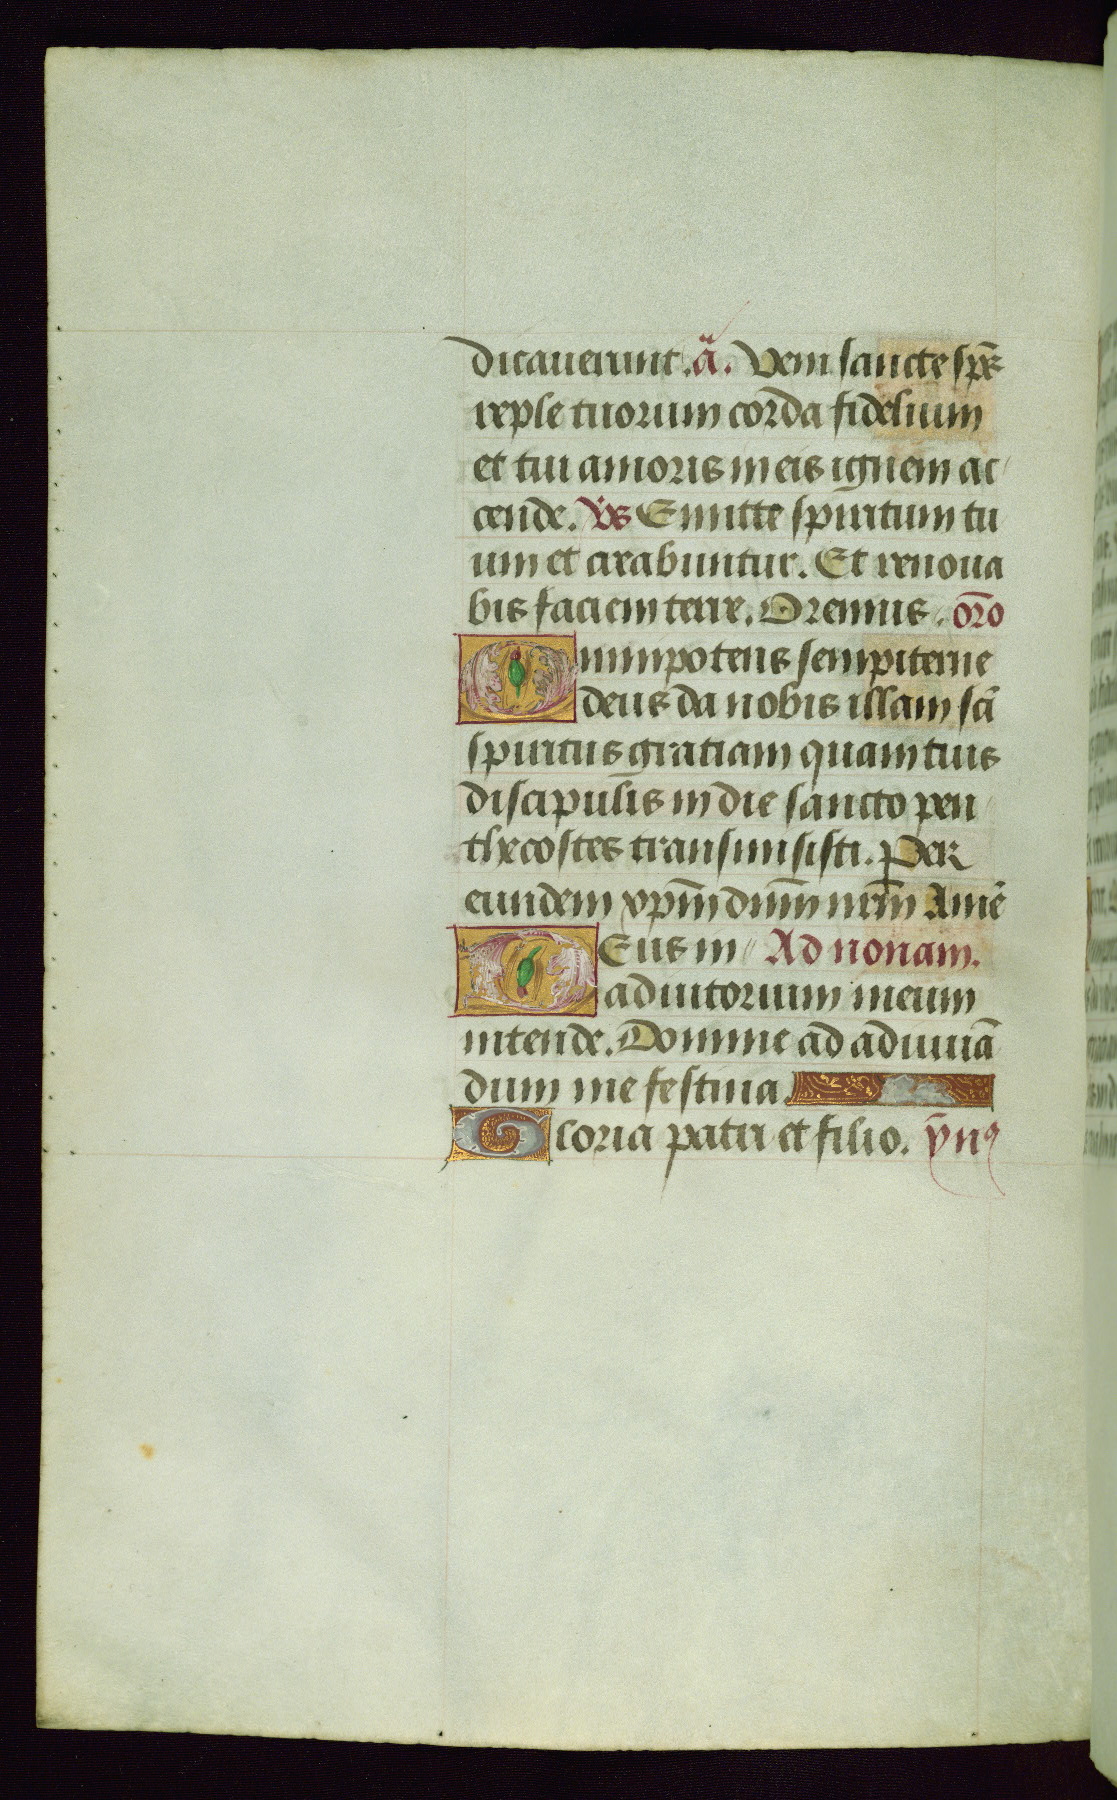 dicauerunt. ã. Veni sancte sp̄s
reple tuorum corda fidelium
et tui amoris in eis ignem ac
cende. V̄s Emitte spiritum tu
um et creabuntur. Et renoua
bis faciem terre. Oremus. or̄o
Omnipotens sempiterne
deus da nobis illam sc̄i
spiritus gratiam quam tuis
discipulis in die sancto pen
thecostes transmisisti. Per
eiundem xp̄m dn̄m nr̄m Amē
DEus in Ad nonam.
adiutorium meum
intende. Domine ad adiuuā
dum me festina.
Gloria patri et filio. ȳnꝰ